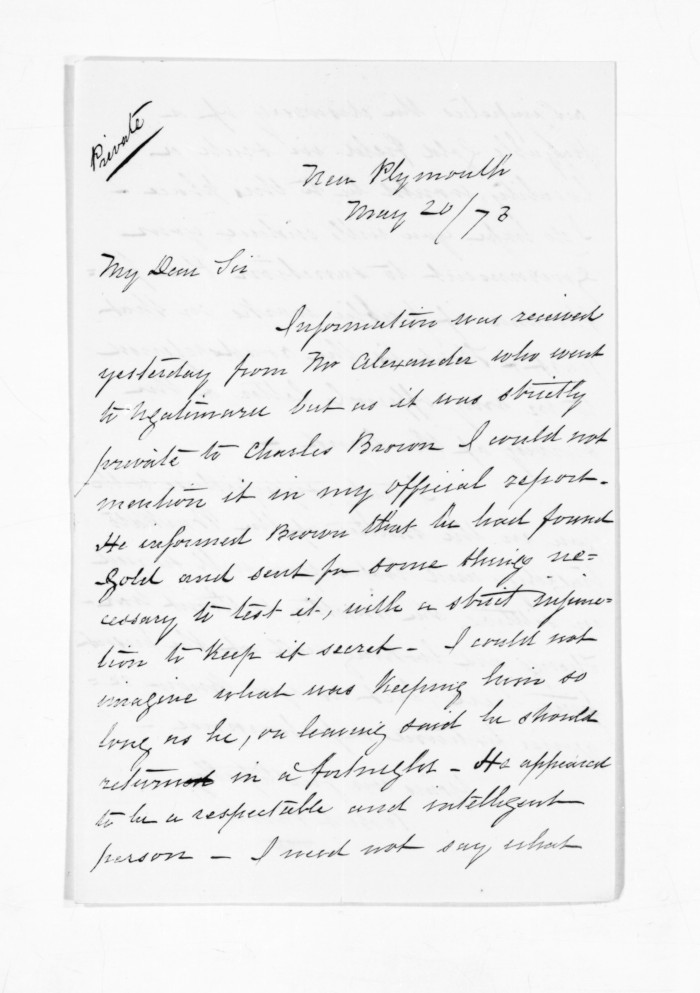 Private
New Plymouth
May 20/73
My Dear Sir
Information was received
yesterday from Mr Alexander who went
to Ngatimaru but as it was strictly
private to Charles Brown I could not
mention it in my official report.
He informed Brown that he had found
gold and sent for some things ne-
cessary to test it, with a strict injunc-
tion to keep it secret - I could not
imagine what was keeping him so
long as he, on leaving said he should
return in a fortnight - He appeared
to be a respectable and intelligent
person - I need not say what